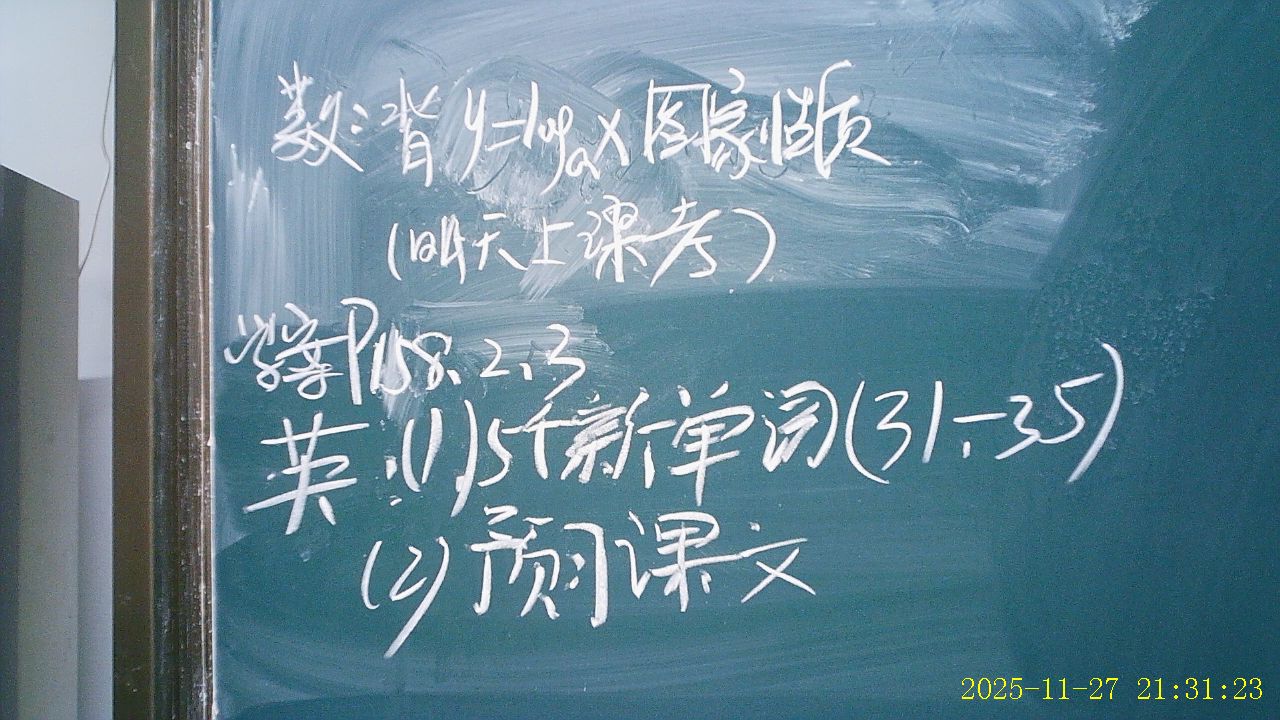 数：背 y=logₐx 图象性质
(明天上课考)
学案P158、2、3
英：(1)5个新单词(31-35)
(2)预习课文
2025-11-27 21:31:23